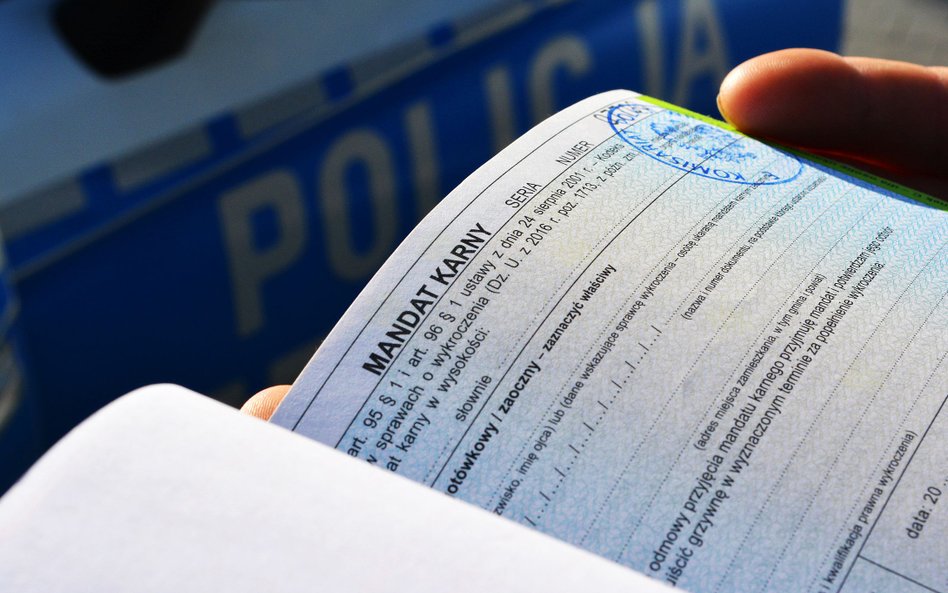 POLICJA
MANDAT KARNY SERIA NUMER
art. 95 § 1 i art. 96 § 1 ustawy z dnia 24 sierpnia 2001 r. - Kodeks
w sprawach o wykroczenia (Dz. U. z 2016 r. poz. 1713, z późn. zm.
at karny w wysokości:
słownie
otówkowy / zaoczny – zaznaczyć właściwy
zwisko, imię ojca) lub (dane wskazujące sprawcę wykroczenia – osobę ukaraną mandatem karnym
(nazwa i numer dokumentu, na podstawie którego ustalono
(adres miejsca zamieszkania, w tym gmina i powiat)
odmowy przyjęcia mandatu karnego przyjmuję mandat i potwierdzam jego odbiór
iścić grzywnę w wyznaczonym terminie za popełnienie wykroczenia:
i kwalifikacja prawna wykroczenia)
data: 20